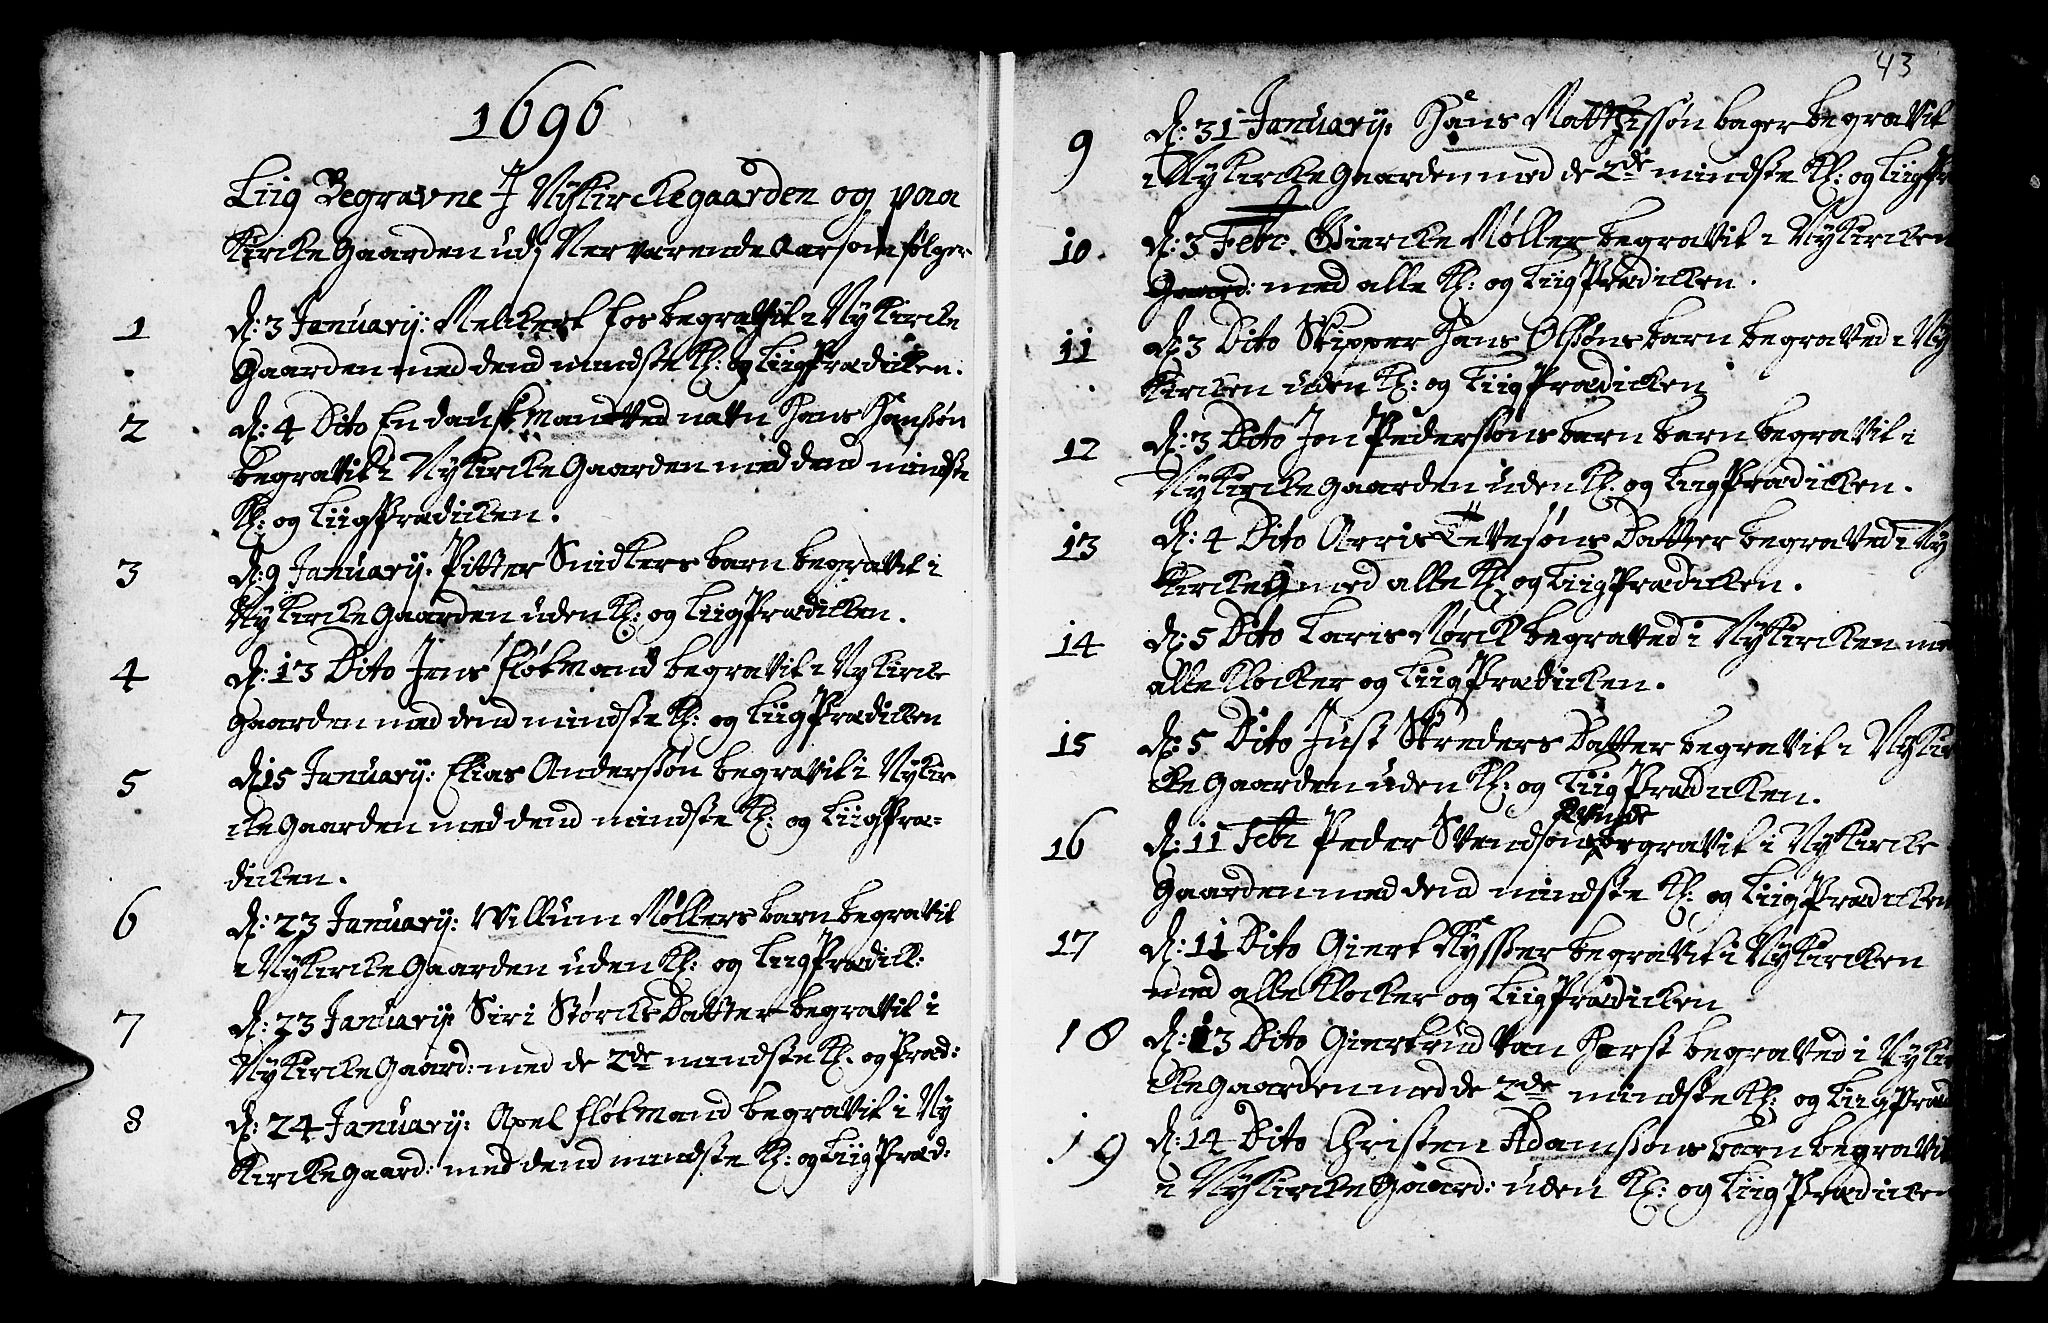 1696
Liig Begravne I Nykirckegaarden og paa
Kircke Gaarden udj Nerværende Aar som følger
1 D: 3 Januarij: Melchert Fos begravit i Ny Kircke
Gaarden med dend mindste Kl: og Liig Prædicken.
2 D: 4 Dito En dansk Mand ved navn Hans Hanssøn
begravit i Ny Kircke Gaarden med dend mindste
Kl: og Liig Prædicken.
3 D: 9 Januarij: Pitter Snidkers barn begravit i
Ny Kircke Gaarden uden Kl: og Liig Prædicken.
4 D: 13 Dito Jens Fløtmand begravit i Ny Kircke
Gaarden med dend mindste Kl: og Liig Prædicken
5 D: 15 Januarij: Elias Anderssøn begravit i Ny Kir
cke Gaarden med dend mindste Kl: og Liig Præ=
dicken.
6 D: 23 Januarij: Willum Møllers barn begravit
i Ny Kircke Gaarden uden Kl: og Liig Prædick:
7 D: 23 Januarij Siri Størcks Datter begravit i
Ny Kircke Gaard: med de 2de mindste Kl. og Præd:
8 D: 24 Januarij: Apel Fløtmand begravit i Ny
Kircke Gaard: med dend mindste Kl: og Liig Præd:
43
9 D: 31 Januarij: Hans Matthissøn bager begravit
i Ny Kircke Gaarden med de 2de mindste Kl: og Liig Pr
10. D: 3 Febr: Giercke Møller begravit i Ny Kircken
Gaard: med alle Kl: og Liig Prædicken.
11 D: 3 Dito Skipper Hans Olssøns barn begraved i Ny
Kircken uden Kl: og Liig Prædicken
12 D: 3 Dito Jon Pederssøns barn barn begravit i
Ny Kircke Gaarden uden Kl. og Liig Prædicken.
13 D: 4 Dito Arris Tetesøns Datter begraved i Ny
Kircke G med alle Kl: og Liig Prædicken.
14 D: 5 Dito Laris Mørck begraved i Ny Kircken me
alle Klocker og Liig Prædicken.
15 D: 5 Dito Just Skreders Datter begravit i Ny Kir
cke Gaarden uden Kl: og Liig Prædicken.
16 D: 11 Febr Peder Svendsøns Kvinde begravit i Ny Kircke
Gaarden med dend mindste Kl: og Liig Prædicken
17 D: 11 Dito Giert Kysser begravit i Ny Kircken
med alle Klocker og Liig Prædicken
18 D: 13 Dito Giertrud van Horst begraved i Ny Kir
cke Gaarden med de 2de mindste Kl: og Liig Præd
19 D: 14 Dito Christen Adamssøns barn begravit
i Ny Kircke Gaard: uden Kl: og Liig Prædicken